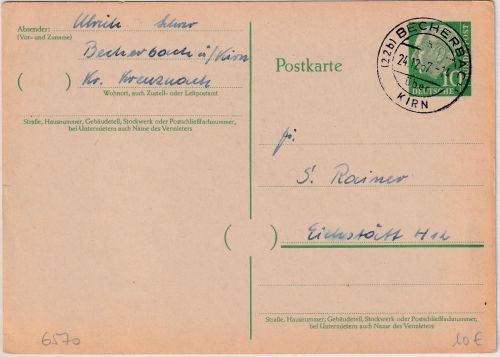 Absender:
(Vor- und Zuname)
Ulrich
Becherbach ü/Kirn
( ) Kr. Kreuznach
Wohnort, auch Zustell- oder Leitpostamt
Straße, Hausnummer, Gebäudeteil, Stockwerk oder Postschließfachnummer,
bei Untermietern auch Name des Vermieters
Postkarte
(22b) BECHERB
24.12.57
KIRN
10
DEUTSCHE
POST
S. Rainer
( ) Eichstätt
Straße, Hausnummer, Gebäudeteil, Stockwerk oder Postschließfachnummer,
bei Untermietern auch Name des Vermieters
6570
10 €